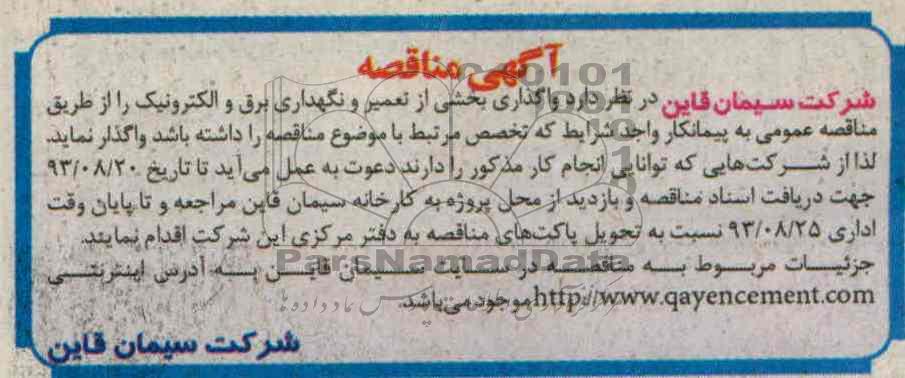 آگهی مناقصه
شرکت سیمان قاین در نظر دارد واگذاری بخشی از تعمیر و نگهداری برق و الکترونیک را از طریق
مناقصه عمومی به پیمانکار واجد شرایط که تخصص مرتبط با موضوع مناقصه را داشته باشد واگذار نماید.
لذا از شرکت‌هایی که توانایی انجام کار مذکور را دارند دعوت به عمل می‌آید تا تاریخ ۹۳/۰۸/۲۰
جهت دریافت اسناد مناقصه و بازدید از محل پروژه به کارخانه سیمان قاین مراجعه و تا پایان وقت
اداری ۹۳/۰۸/۲۵ نسبت به تحویل پاکت‌های مناقصه به دفتر مرکزی این شرکت اقدام نمایند.
جزئیات مربوط به مناقصه در سایت سیمان قاین به آدرس اینترنتی
http://www.qayencement.com موجود می‌باشد.
شرکت سیمان قاین
ParsNamadData